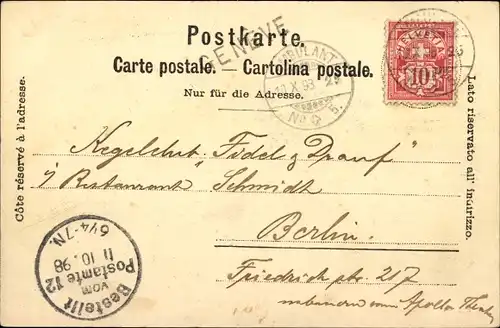 Postkarte.
GENÈVE
Carte postale. — Cartolina postale.
Nur für die Adresse.
AMBULANT
X 98
No 5.
HELVETIA
10
Côte réservé à l'adresse.
Lato riservato all' indirizzo.
Kegelclub „Fidel & Drauf"
Restaurant Schmidt
Berlin.
Friedrich str. 217
nebenan vom Apollo Theater
Bestellt
vom
Postamte 12
11. 10. 98
6¼-7N.